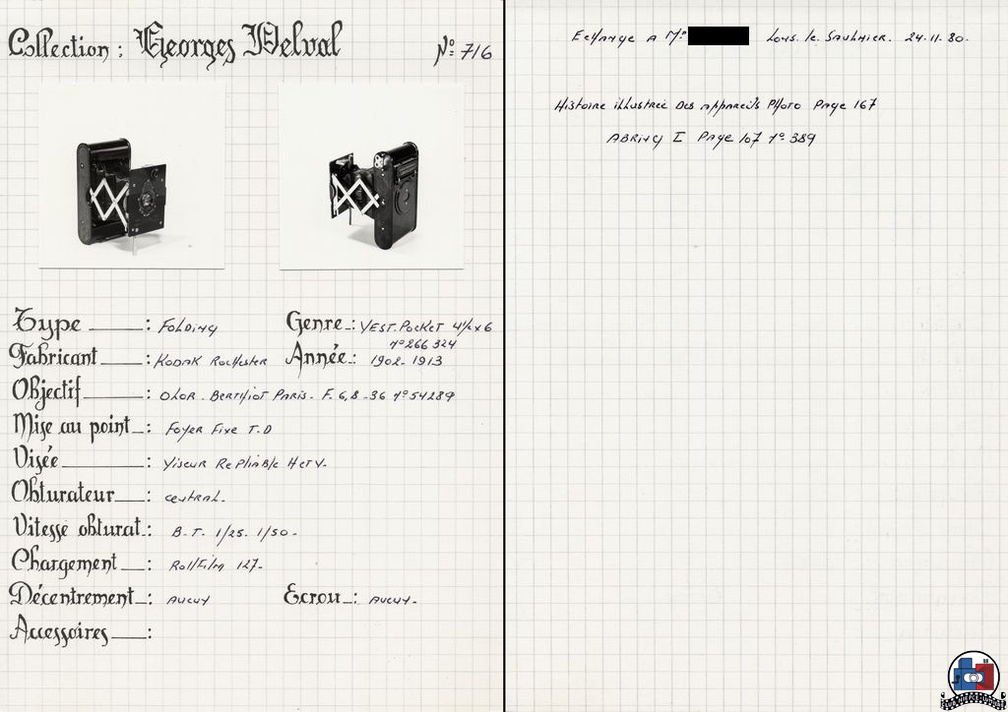 Collection : Georges Delval Nº 716
Type : Folding Genre : Vest. Pocket 4½ x 6
nº 266 324
Fabricant : Kodak Rochester Année : 1902-1913
Objectif : Olor. Berthiot Paris. F. 6,8 - 36 nº 54289
Mise au point : Foyer Fixe T.D
Visée : Viseur Repliable H et V.
Obturateur : central.
Vitesse obturat. : B. T. 1/25. 1/50.
Chargement : Rollfilm 127.
Décentrement : Aucun Ecrou : Aucun.
Accessoires :
Echange a Mr Lons. le. Saulnier. 24.11.80.
Histoire illustrée Des appareils Photo Page 167
ABRING I Page 107 nº 389